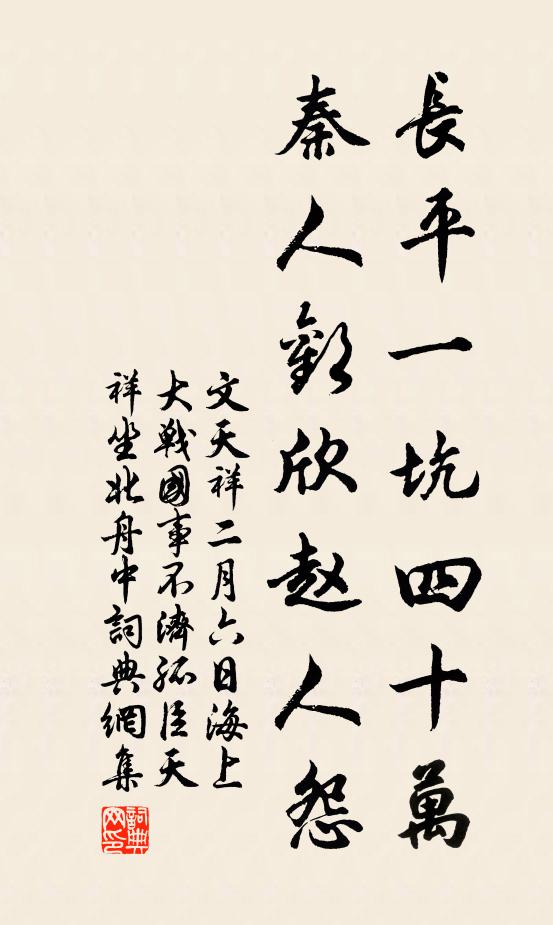 長平一坑四十萬
秦人歡欣趙人怨
文天祥二月六日海上
大戰國事不濟孤臣天
祥坐北舟中詞典網集
詞典網印